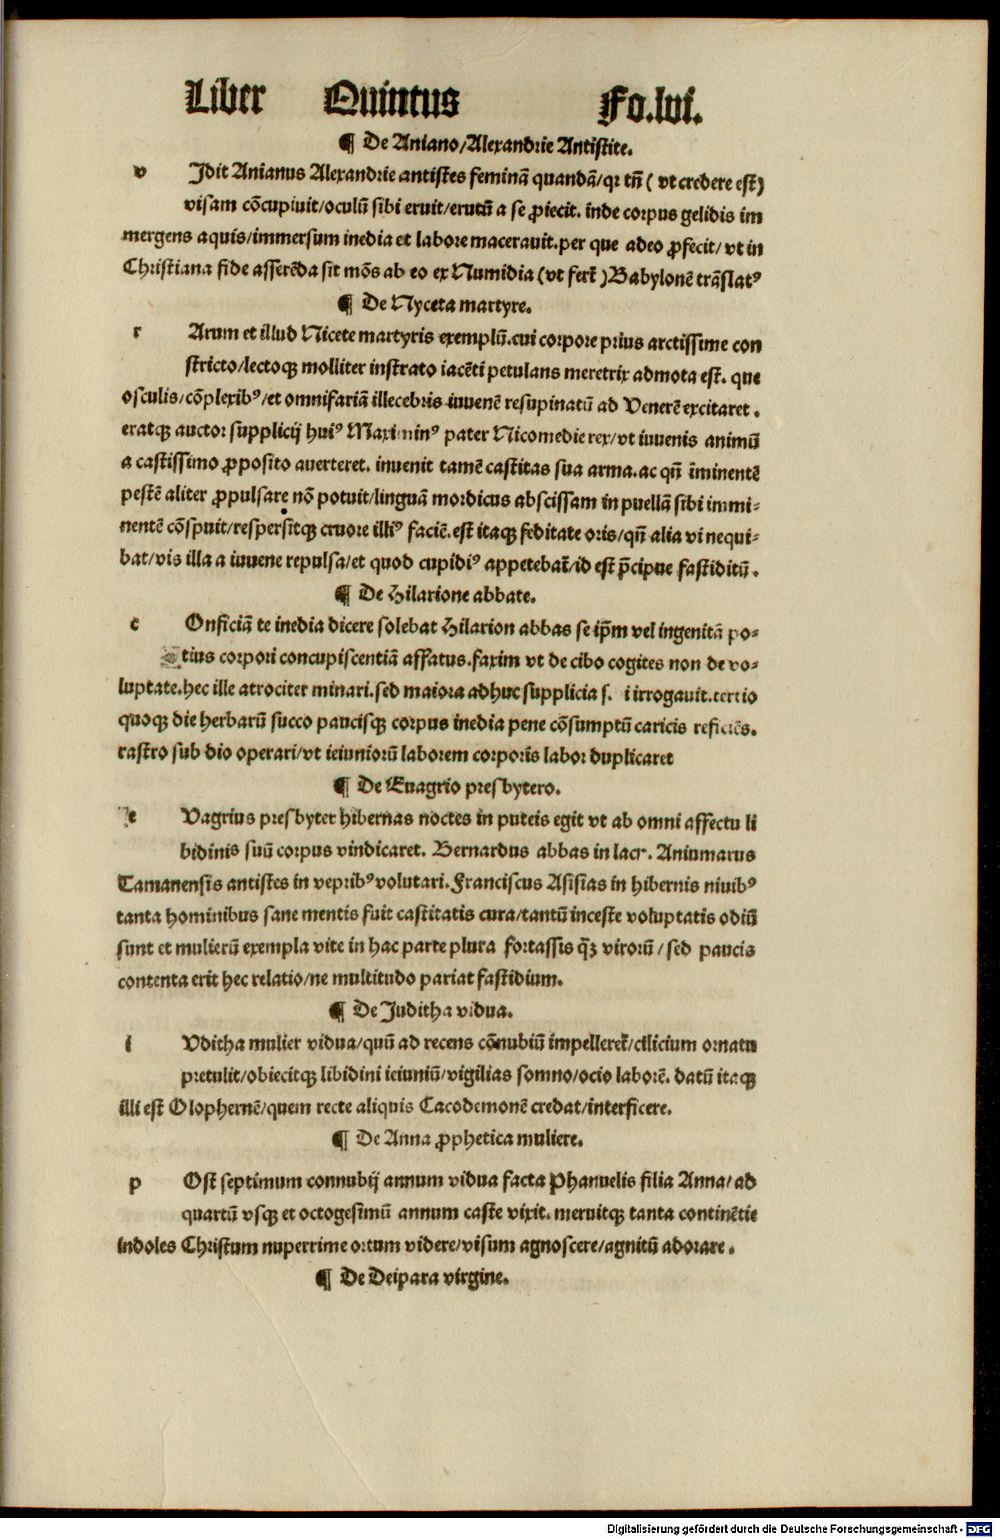 Liber Quintus Fo.lvi.
¶ De Aniano/Alexandrie Antistite.
v Idit Anianus Alexandrie antistes feminā quandā/qr tn̄ ( vt credere est)
visam cōcupiuit/oculū sibi eruit/erutū a se ꝓiecit. inde corpus gelidis im
mergens aquis/immersum inedia et labore macerauit.per que adeo ꝓfecit/ vt in
Christiana fide asserēda sit mōs ab eo ex Numidia (vt fert̄ )Babylonē trāslatꝰ
¶ De Nyceta martyre.
r Arum et illud Nicete martyris exemplū.cui corpore prius arctissime con
stricto/lectoqꝫ molliter instrato iacēti petulans meretrix admota est. que
osculis/cōplexibꝰ/et omnifariā illecebris iuuenē resupinatū ad Venerē excitaret .
eratqꝫ auctor supplicij huiꝰ Maximinꝰ pater Nicomedie rex/vt iuuenis animū
a castissimo ꝓposito auerteret. inuenit tamē castitas sua arma. ac qn̄ īminentē
pestē aliter ꝓpulsare nō potuit/linguā mordicus abscissam in puellā sibi immi-
nentē cōspuit/respersitqꝫ cruore illiꝰ faciē. est itaqꝫ feditate oris/qn̄ alia vi nequi-
bat/vis illa a iuuene repulsa/et quod cupidiꝰ appetebat̄/id est p̄cipue fastiditū .
¶ De Hilarione abbate.
c Onficiā te inedia dicere solebat Hilarion abbas se ip̄m vel ingenitā po-
tius corpori concupiscentiā affatus.faxim vt de cibo cogites non de vo-
luptate.hec ille atrociter minari.sed maiora adhuc supplicia irrogauit.tertio
quoqꝫ die herbarū succo paucisqꝫ corpus inedia pene cōsumptū caricis reficiēs.
rastro sub dio operari/vt ieiuniorū laborem corporis labor duplicaret
¶ De Euagrio presbytero.
e Vagrius presbyter hibernas noctes in puteis egit vt ab omni affectu li
bidinis suū corpus vindicaret. Bernardus abbas in lacr. Aniumarus
Tamanensis antistes in vepribꝰ volutari.Franciscus Asisias in hibernis niuibꝰ
tanta hominibus sane mentis fuit castitatis cura/tantū inceste voluptatis odiū
sunt et mulierū exempla vite in hac parte plura fortassis qꝫ virorū / sed paucis
contenta erit hec relatio/ne multitudo pariat fastidium.
¶ De Juditha vidua.
i Vditha mulier vidua/quū ad recens cōnubiū impelleret̄/cilicium ornatu
pretulit/obiecitqꝫ libidini ieiuniū/vigilias somno/ocio laborē. datū itaqꝫ
illi est Olophernē/quem recte aliquis Cacodemonē credat/interficere.
¶ De Anna ꝓphetica muliere.
p Ost septimum connubij annum vidua facta Phanuelis filia Anna/ ad
quartū vsqꝫ et octogesimū annum caste vixit. meruitqꝫ tanta continētie
indoles Christum nuperrime ortum videre/visum agnoscere/agnitū adorare .
¶ De Deipara virgine.
Digitalisierung gefördert durch die Deutsche Forschungsgemeinschaft - DFG